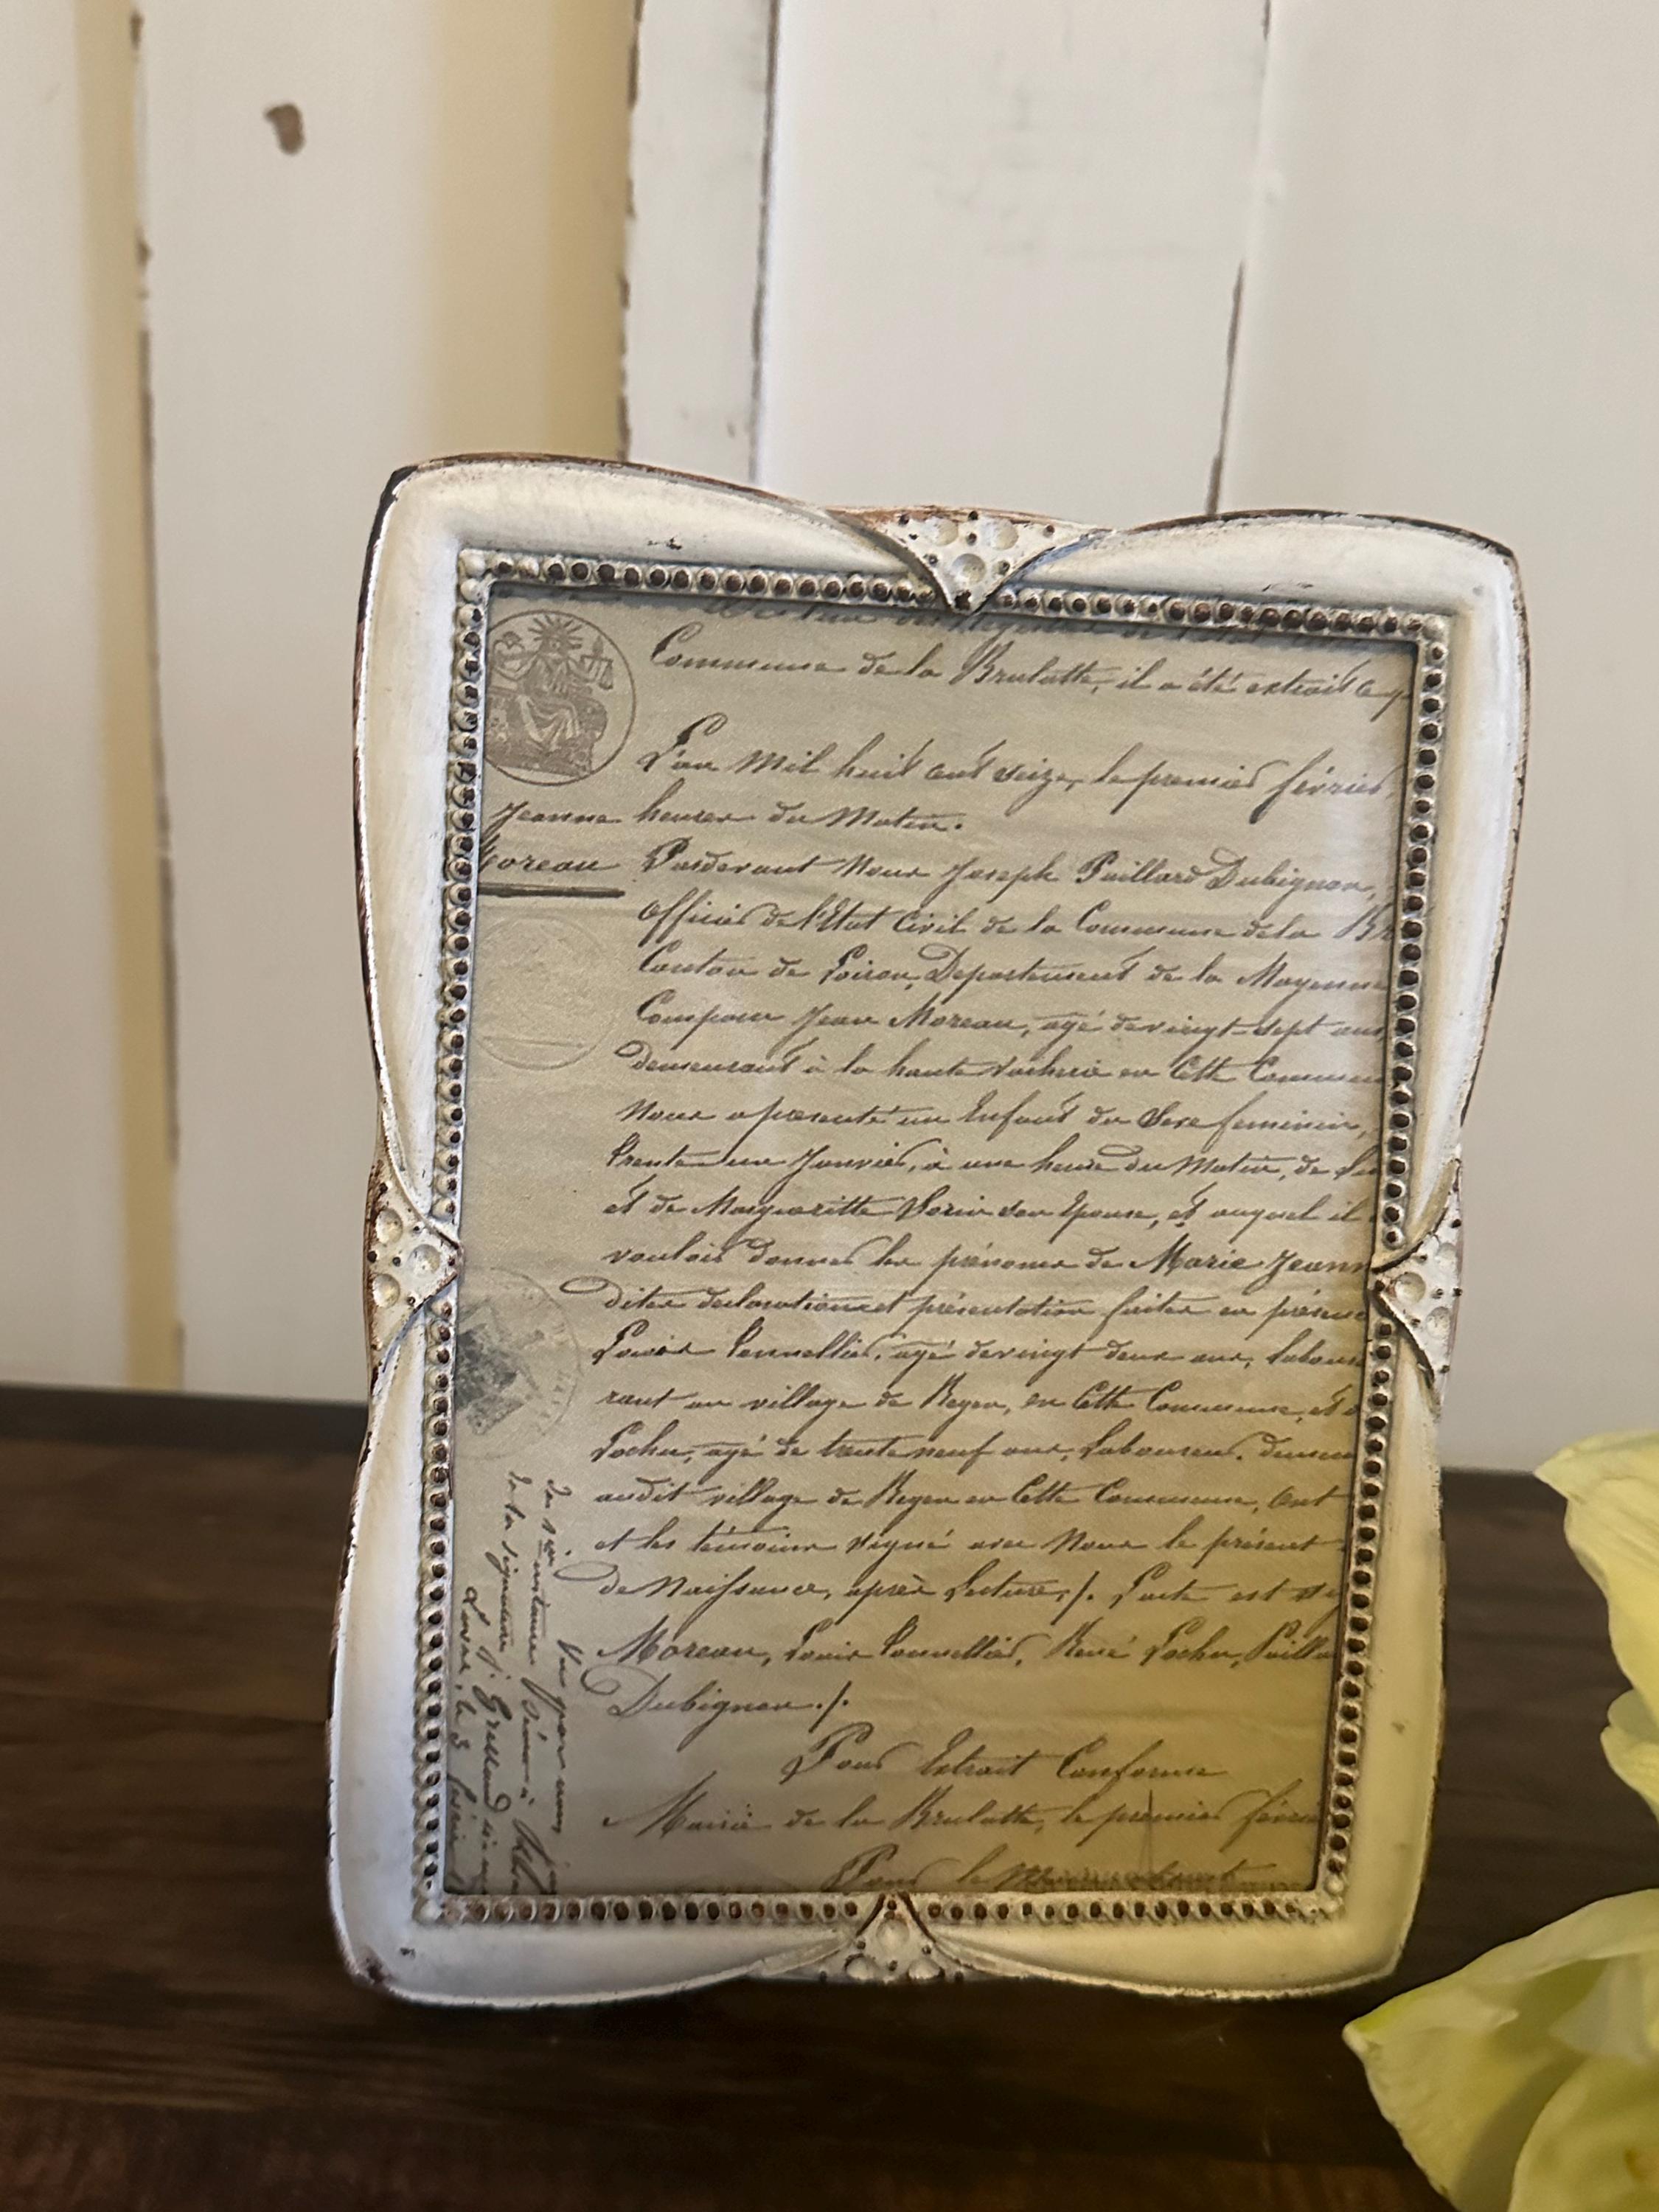 Commune de la Brulatte, il a été extrait
L'an Mil huit cent seize, le premier février,
Jeanne heures du Matin.
Moreau Pardevant Nous Joseph Paillard Dubignon,
Officier de l'Etat Civil de la Commune de la Br
Canton de Loiron, Departement de la Mayenne
Comparu Jean Moreau, agé de vingt-sept ans
demeurant à la haute vacherie en Cette Commun
Nous a présenté un Enfant du Sexe feminin,
trente un Janvier, à une heure du Matin, de
et de Margueritte son Epouse, et auquel il
vouloir donner les prénoms de Marie Jeann
dites declaration et présentation faites en présen
Louis agé de vingt deux ans, Labour
rant au village de en Cette Commune, et
agé de trente neuf ans, Laboureur, demeu
audit village de en Cette Commune, Ont
et les témoins signé avec Nous le présent
de Naissance, après Lecture, ./. L'acte est
Moreau, Louis René Paillar
Dubignon ./.
Pour Extrait Conforme
Mairie de la Brulatte, le premier févri
Pour le
Vu par nous
de la signature
Laval, le 3